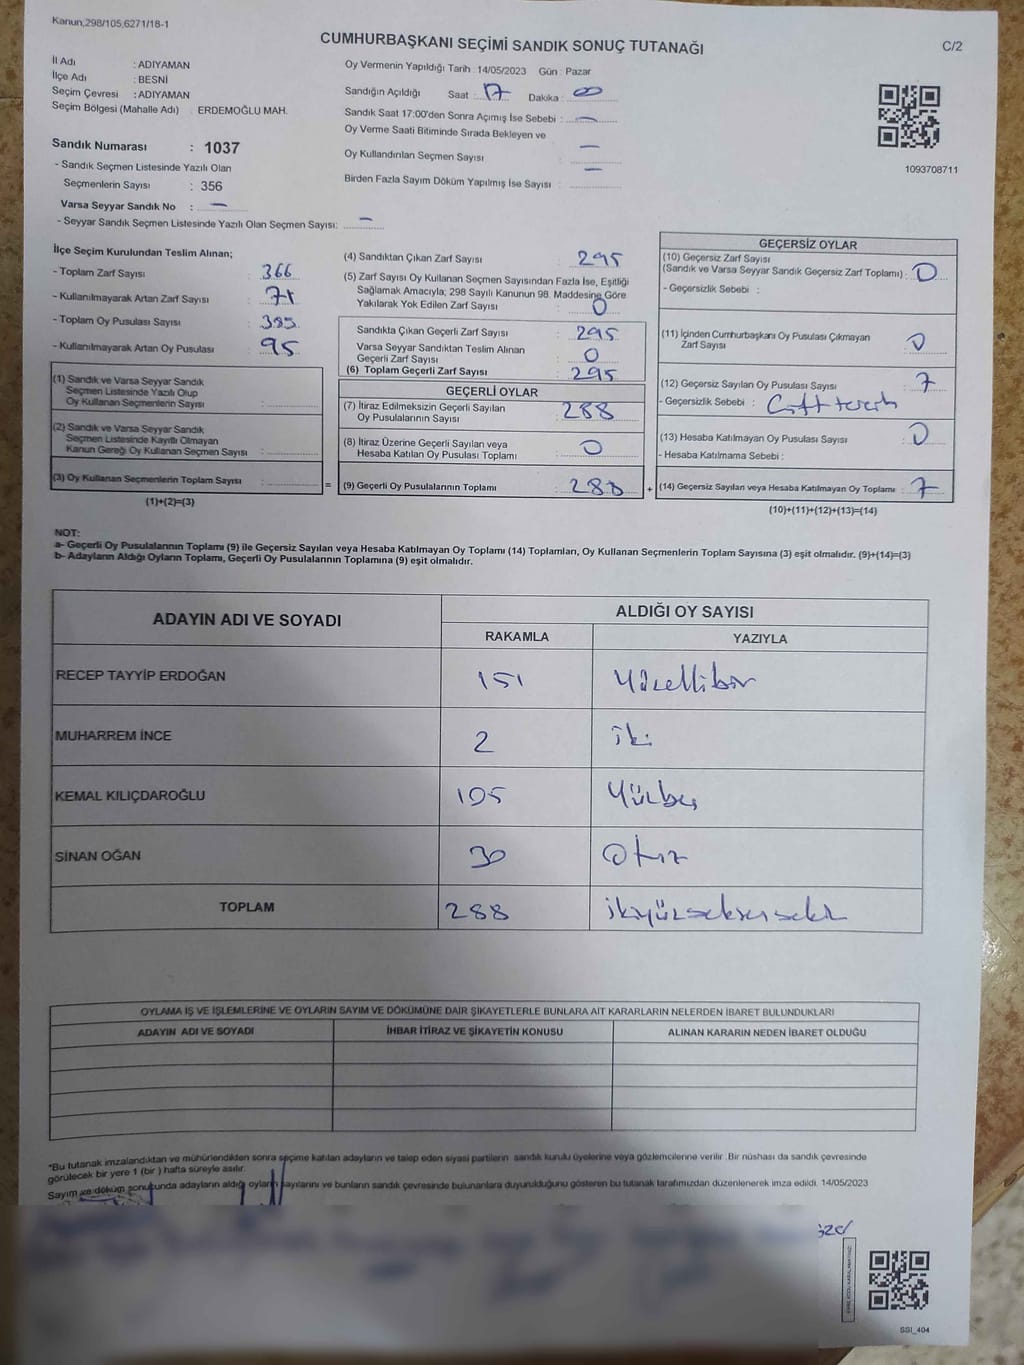 Kanun,298/105,6271/18-1
CUMHURBAŞKANI SEÇİMİ SANDIK SONUÇ TUTANAĞI
C/2
İl Adı : ADIYAMAN
İlçe Adı : BESNİ
Seçim Çevresi : ADIYAMAN
Seçim Bölgesi (Mahalle Adı) : ERDEMOĞLU MAH.
Sandık Numarası : 1037
- Sandık Seçmen Listesinde Yazılı Olan
Seçmenlerin Sayısı : 356
Varsa Seyyar Sandık No : —
- Seyyar Sandık Seçmen Listesinde Yazılı Olan Seçmen Sayısı: —
Oy Vermenin Yapıldığı Tarih : 14/05/2023 Gün : Pazar
Sandığın Açıldığı Saat : 17 Dakika : 00
Sandık Saat 17:00'den Sonra Açımış İse Sebebi : —
Oy Verme Saati Bitiminde Sırada Bekleyen ve
Oy Kullandırılan Seçmen Sayısı : —
Birden Fazla Sayım Döküm Yapılmış İse Sayısı : —
1093708711
İlçe Seçim Kurulundan Teslim Alınan;
- Toplam Zarf Sayısı : 366
- Kullanılmayarak Artan Zarf Sayısı : 71
- Toplam Oy Pusulası Sayısı :
- Kullanılmayarak Artan Oy Pusulası : 95
(1) Sandık ve Varsa Seyyar Sandık
Seçmen Listesinde Yazılı Olup
Oy Kullanan Seçmenlerin Sayısı :
(2) Sandık ve Varsa Seyyar Sandık
Seçmen Listesinde Kayıtlı Olmayan
Kanun Gereği Oy Kullanan Seçmen Sayısı :
(3) Oy Kullanan Seçmenlerin Toplam Sayısı :
(1)+(2)=(3)
(4) Sandıktan Çıkan Zarf Sayısı : 295
(5) Zarf Sayısı Oy Kullanan Seçmen Sayısından Fazla İse, Eşitliği
Sağlamak Amacıyla; 298 Sayılı Kanunun 98. Maddesine Göre
Yakılarak Yok Edilen Zarf Sayısı : 0
Sandıkta Çıkan Geçerli Zarf Sayısı : 295
Varsa Seyyar Sandıktan Teslim Alınan
Geçerli Zarf Sayısı : 0
(6) Toplam Geçerli Zarf Sayısı : 295
GEÇERLİ OYLAR
(7) İtiraz Edilmeksizin Geçerli Sayılan
Oy Pusulalarının Sayısı : 288
(8) İtiraz Üzerine Geçerli Sayılan veya
Hesaba Katılan Oy Pusulası Toplamı : 0
= (9) Geçerli Oy Pusulalarının Toplamı : 288
GEÇERSİZ OYLAR
(10) Geçersiz Zarf Sayısı
(Sandık ve Varsa Seyyar Sandık Geçersiz Zarf Toplamı) : 0
- Geçersizlik Sebebi :
(11) İçinden Cumhurbaşkanı Oy Pusulası Çıkmayan
Zarf Sayısı : 0
(12) Geçersiz Sayılan Oy Pusulası Sayısı : 7
- Geçersizlik Sebebi : Çift tercih
(13) Hesaba Katılmayan Oy Pusulası Sayısı : 0
- Hesaba Katılmama Sebebi :
+ (14) Geçersiz Sayılan veya Hesaba Katılmayan Oy Toplamı : 7
(10)+(11)+(12)+(13)=(14)
NOT:
a- Geçerli Oy Pusulalarının Toplamı (9) ile Geçersiz Sayılan veya Hesaba Katılmayan Oy Toplamı (14) Toplamları, Oy Kullanan Seçmenlerin Toplam Sayısına (3) eşit olmalıdır. (9)+(14)=(3)
b- Adayların Aldığı Oyların Toplamı, Geçerli Oy Pusulalarının Toplamına (9) eşit olmalıdır.
ADAYIN ADI VE SOYADI
ALDIĞI OY SAYISI
RAKAMLA YAZIYLA
RECEP TAYYİP ERDOĞAN 151 Yüzellibir
MUHARREM İNCE 2 İki
KEMAL KILIÇDAROĞLU 105 Yüzbeş
SİNAN OĞAN 30 Otuz
TOPLAM 288 ikiyüzseksensekiz
OYLAMA İŞ VE İŞLEMLERİNE VE OYLARIN SAYIM VE DÖKÜMÜNE DAİR ŞİKAYETLERLE BUNLARA AİT KARARLARIN NELERDEN İBARET BULUNDUKLARI
ADAYIN ADI VE SOYADI İHBAR İTİRAZ VE ŞİKAYETİN KONUSU ALINAN KARARIN NEDEN İBARET OLDUĞU
*Bu tutanak imzalandıktan ve mühürlendikten sonra seçime katılan adayların ve talep eden siyasi partilerin sandık kurulu üyelerine veya gözlemcilerine verilir .Bir nüshası da sandık çevresinde
görülecek bir yere 1 (bir ) hafta süreyle asılır.
Sayım ve döküm sonucunda adayların aldığı oyların sayılarını ve bunların sandık çevresinde bulunanlara duyurulduğunu gösteren bu tutanak tarafımızdan düzenlenerek imza edildi. 14/05/2023
SSI_404